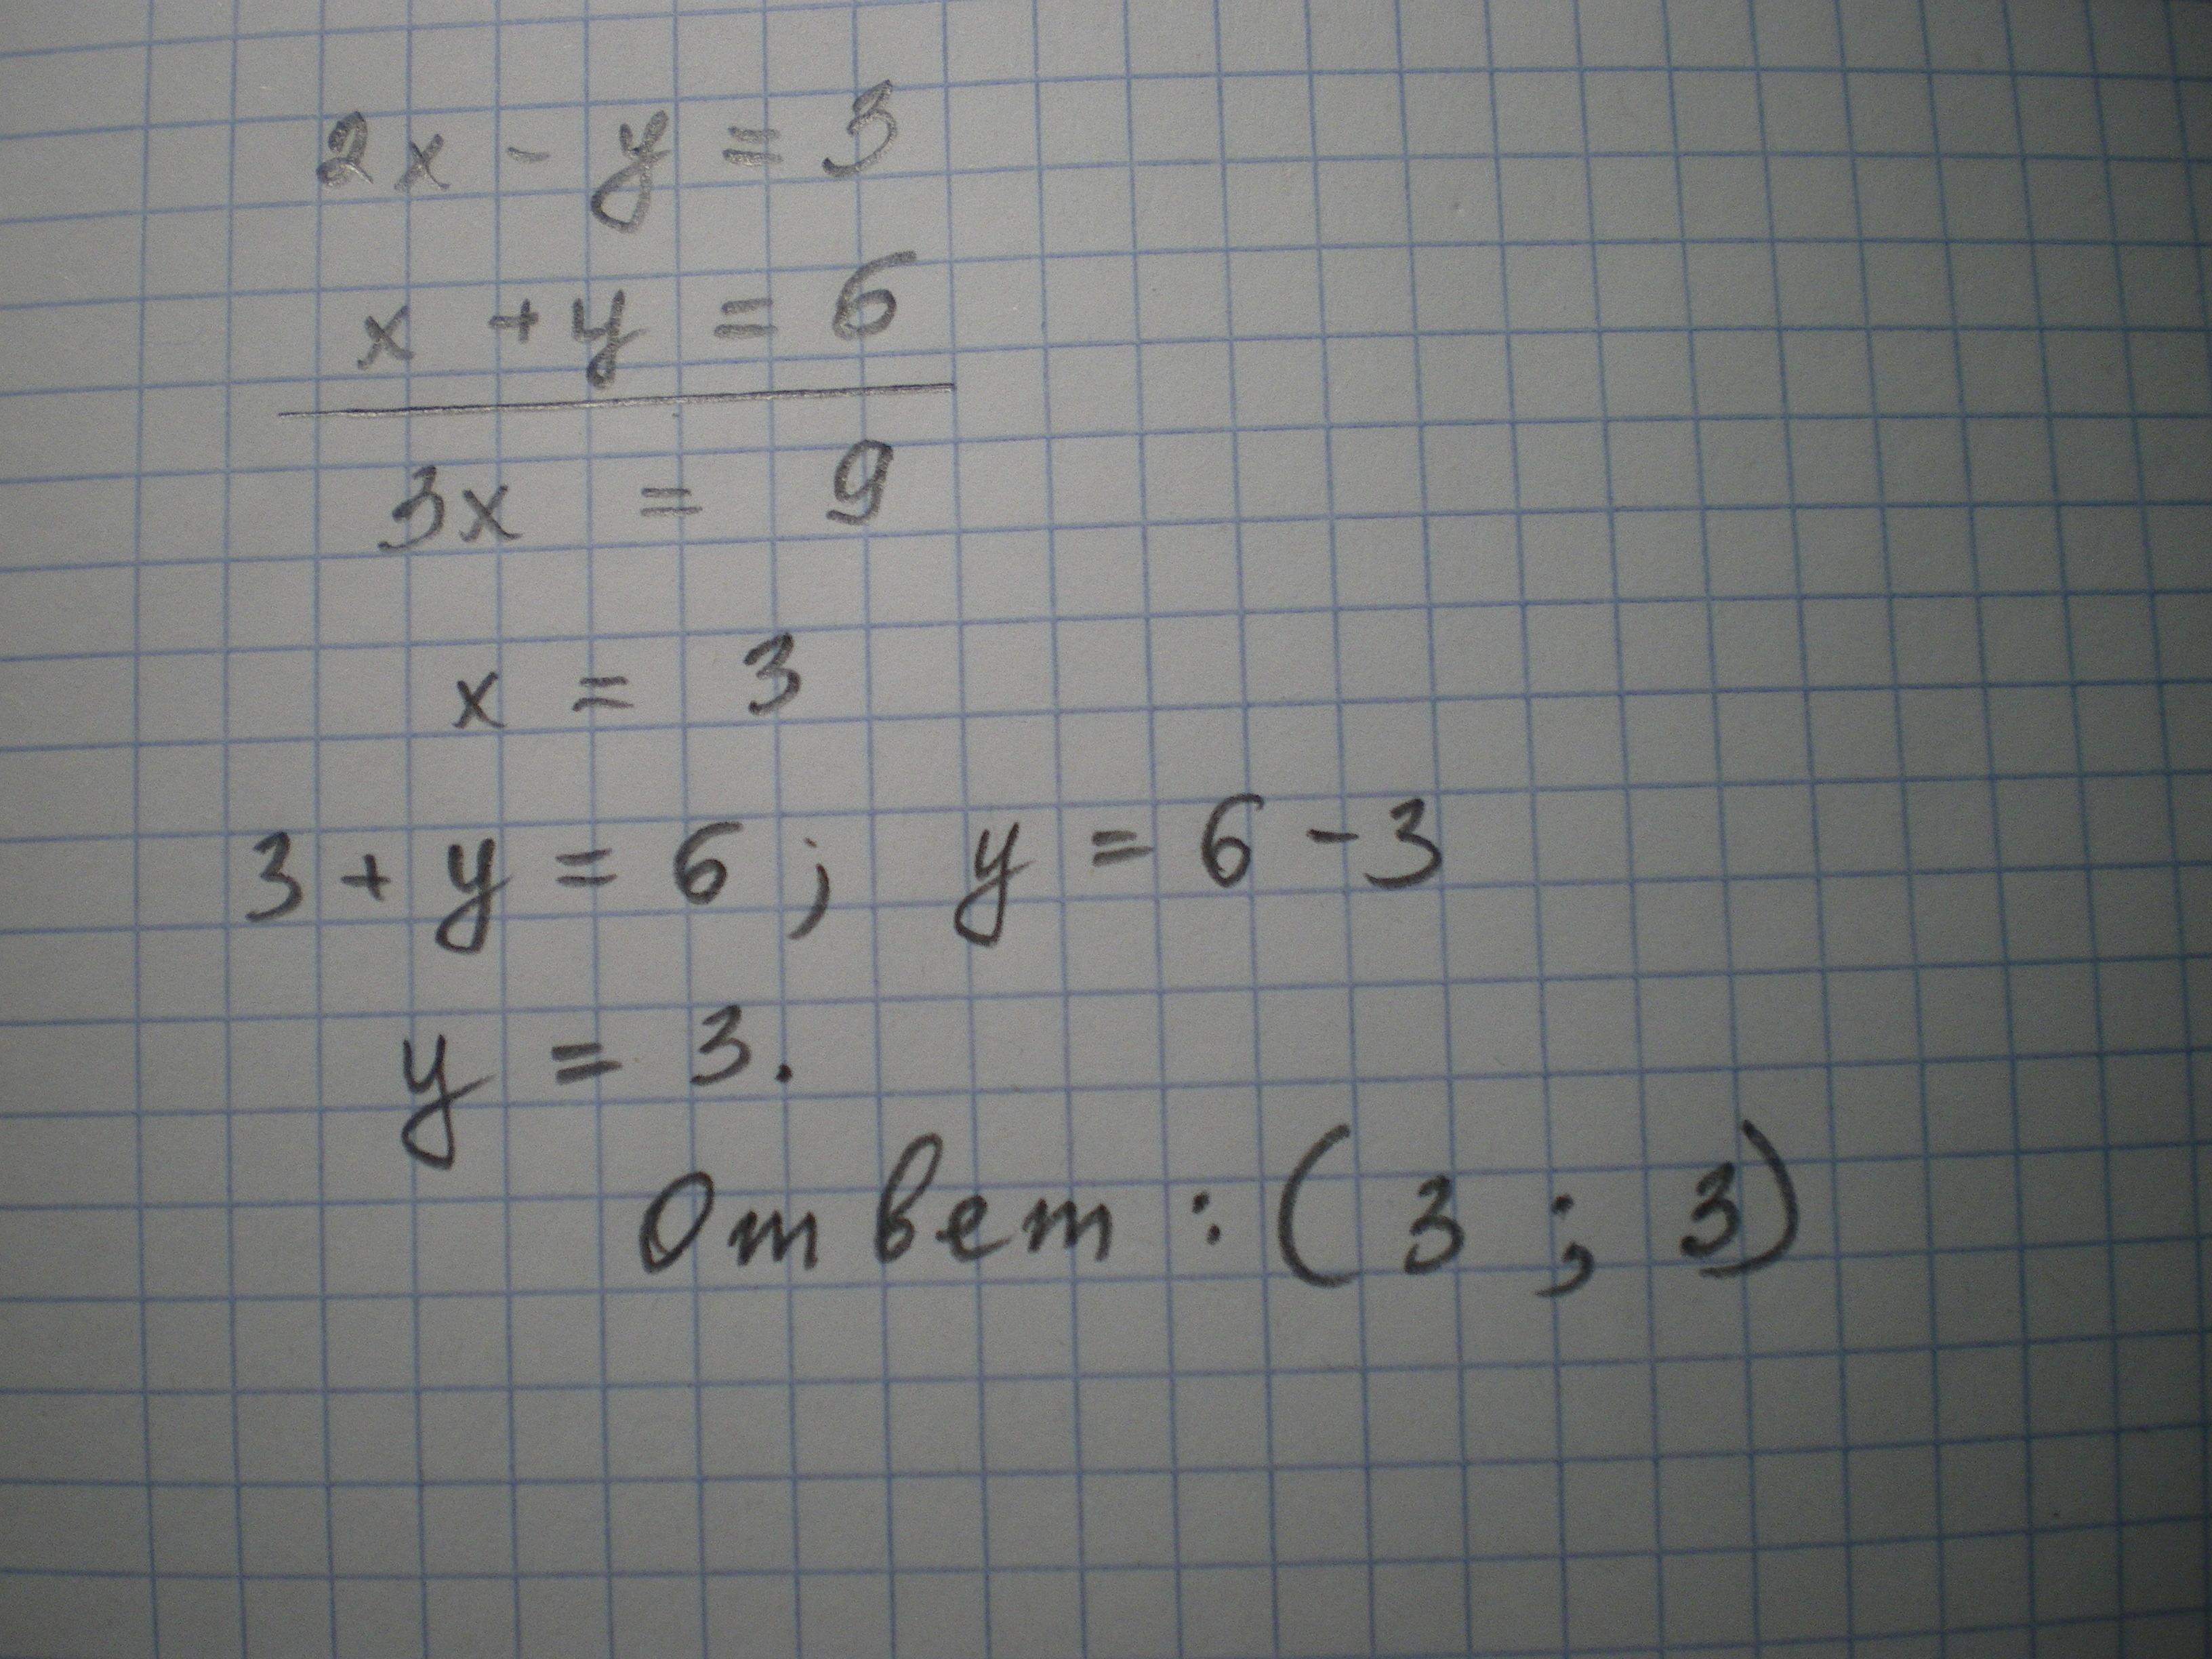 2x - y = 3
x + y = 6
3x = 9
x = 3
3 + y = 6 ; y = 6 - 3
y = 3.
Ответ : ( 3 ; 3 )